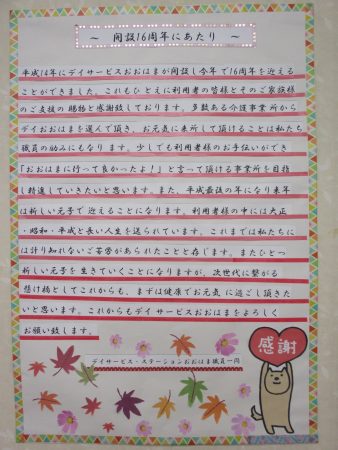 ～ 開設16周年にあたり ～
平成14年にデイサービスおおはまが開設し今年で16周年を迎える
ことができました。これもひとえに利用者の皆様とそのご家族様
のご支援の賜物と感謝致しております。多数ある介護事業所から
デイおおはまを選んで頂き、お元気に来所して頂けることは私たち
職員の励みにもなります。少しでも利用者様のお手伝いができ
「おおはまに行って良かったよ!」と言って頂ける事業所を目指
し精進していきたいと思います。また、平成最後の年になり来年
は新しい元号で迎えることになります。利用者様の中には大正
・昭和・平成と長い人生を送られています。これまでは私たちに
は計り知れないご苦労があられたことと存じます。またひとつ
新しい元号を生きていくことになりますが、次世代に繋がる
懸け橋としてこれからも、まずは健康でお元気に過ごし頂きた
いと思います。これからもデイサービスおおはまをよろしく
お願い致します。
デイサービス・ステーションおおはま職員一同
感謝